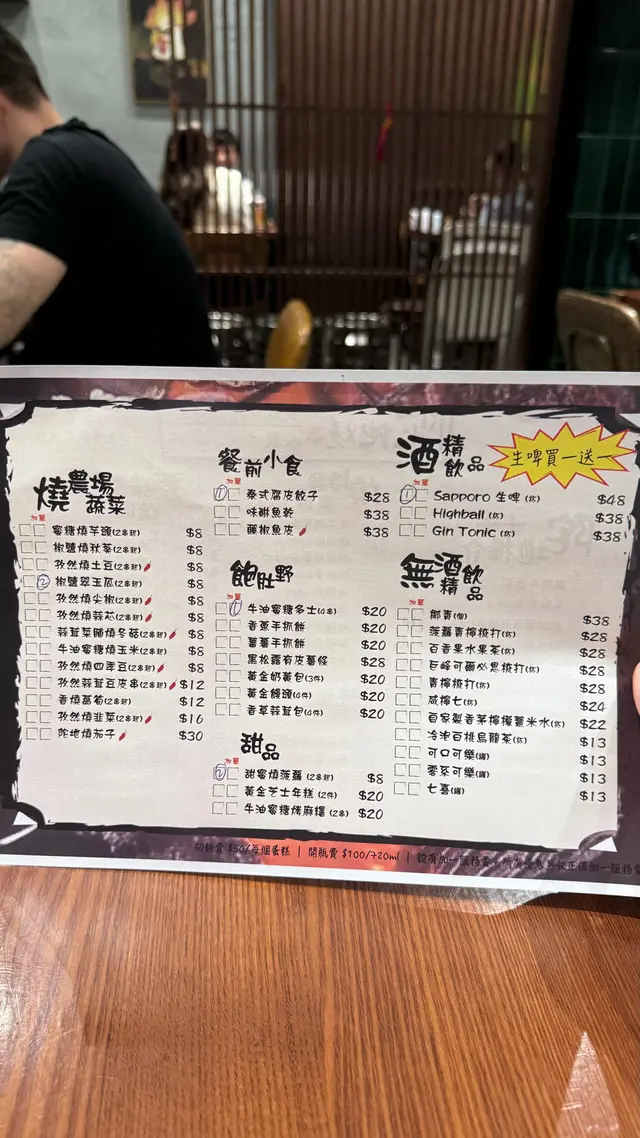 燒農場蔬菜
加單
蜜糖燒芋頭(2串起) $8
椒鹽燒秋葵(2串起) $8
孜然燒土豆(2串起) $8
2 椒鹽翠玉瓜(2串起) $8
孜然燒尖椒(2串起) $8
孜然燒蒜芯(2串起) $8
蒜茸菜脯燒冬菇(2串起) $8
牛油蜜糖燒玉米(2串起) $8
孜然燒四季豆(2串起) $8
孜然蒜茸豆皮串(2串起) $12
香燒蒿筍(2串起) $12
孜然燒韮菜(2串起) $16
陀地燒茄子 $30
餐前小食
加單
1 泰式腐皮餃子 $28
味醂魚乾 $38
藤椒魚皮 $38
飽肚野
加單
1 牛油蜜糖多士(4串) $20
香蔥手抓餅 $20
薯蓉手抓餅 $20
黑松露有皮薯條 $28
黃金奶黃包(3件) $20
黃金饅頭(4件) $20
香草蒜茸包(4件) $20
甜品
加單
2 甜蜜燒菠蘿(2串起) $8
黃金芝士年糕(2件) $20
牛油蜜糖烤麻糬(2串) $20
酒精飲品
生啤買一送一
加單
1 Sapporo 生啤(杯) $48
Highball (杯) $38
Gin Tonic (杯) $38
無酒精飲品
加單
椰青(個) $38
菠蘿青檸梳打(杯) $28
百香果水果茶(杯) $28
巨峰可爾必思梳打(杯) $28
青檸梳打(杯) $28
咸檸七(杯) $24
自家製香茅檸檬薏米水(杯) $22
冷泡白桃烏龍茶(杯) $13
可口可樂(罐) $13
零系可樂(罐) $13
七喜(罐) $13
切餅費 $50/每個蛋糕 | 開瓶費 $100/720ml | 設有加一服務費